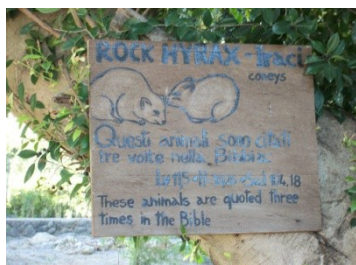 ROCK HYRAX - Iraci
coneys
Questi animali sono citati
tre volte nella Bibbia.
4,18
These animals are quoted three
times in the Bible